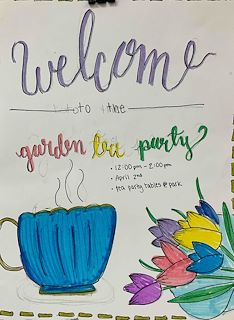 welcome
to the
garden tea party
• 12:00pm - 2:00pm
• April 2nd
• tea party tables @ park